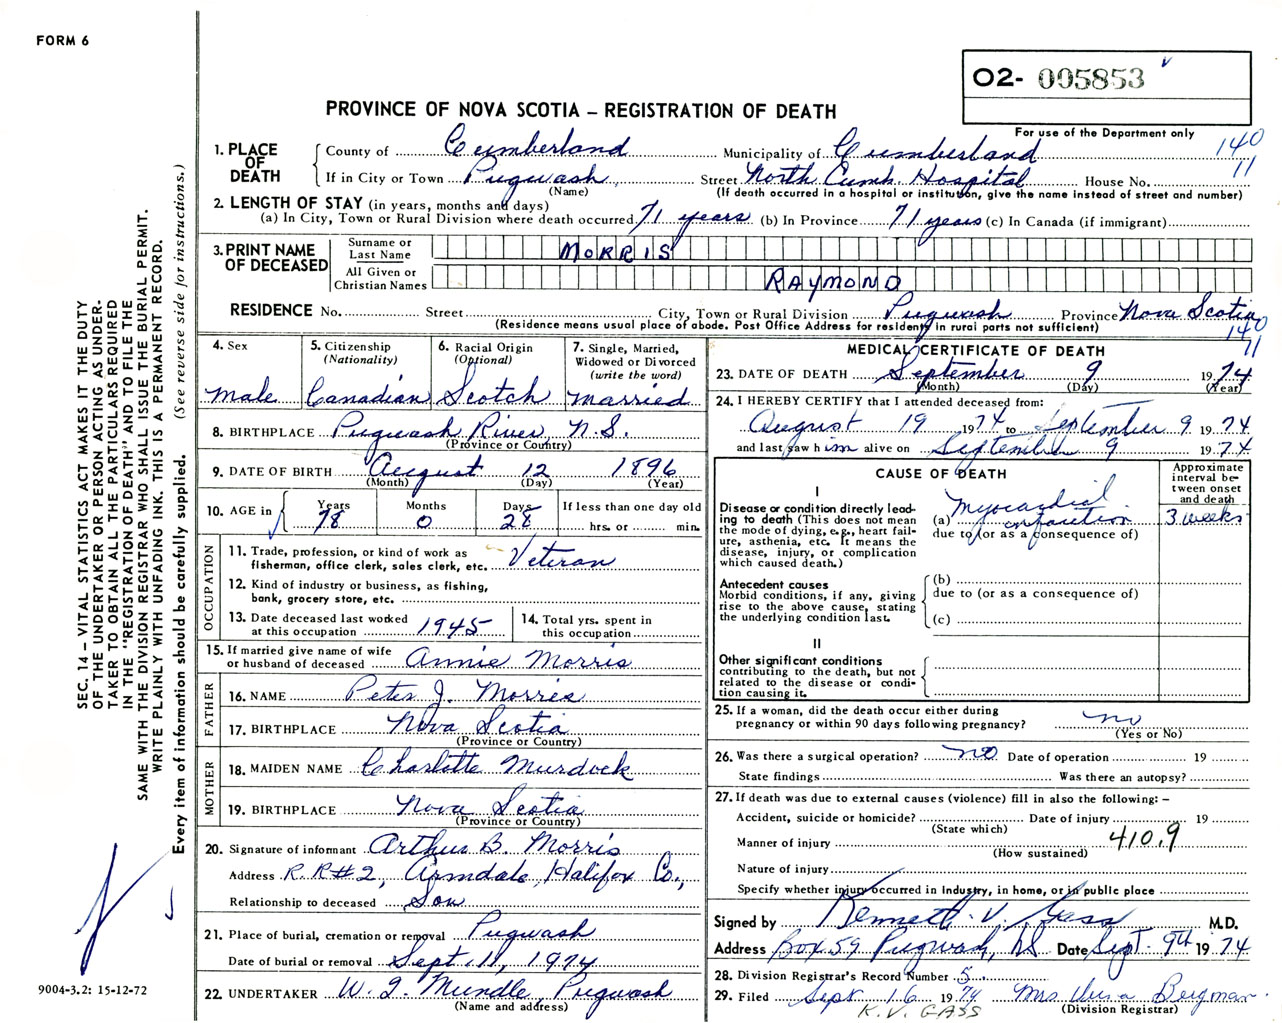 FORM 6
O2- 005853
PROVINCE OF NOVA SCOTIA – REGISTRATION OF DEATH
For use of the Department only
140
11
1. PLACE OF DEATH
County of Cumberland Municipality of Cumberland
If in City or Town Pugwash Street North Cumb. Hospital House No.
(Name) (If death occurred in a hospital or institution, give the name instead of street and number)
2. LENGTH OF STAY (in years, months and days)
(a) In City, Town or Rural Division where death occurred 71 years (b) In Province 71 years (c) In Canada (if immigrant)
3. PRINT NAME OF DECEASED
Surname or Last Name MORRIS
All Given or Christian Names RAYMOND
RESIDENCE No. Street City, Town or Rural Division Pugwash Province Nova Scotia
(Residence means usual place of abode. Post Office Address for residents in rural parts not sufficient)
140
11
4. Sex
Male
5. Citizenship
(Nationality)
Canadian
6. Racial Origin
(Optional)
Scotch
7. Single, Married, Widowed or Divorced
(write the word)
Married
8. BIRTHPLACE Pugwash River, N.S.
(Province or Country)
9. DATE OF BIRTH August 12 1896
(Month) (Day) (Year)
10. AGE in Years 78 Months 0 Days 28 If less than one day old
hrs. or min.
OCCUPATION
11. Trade, profession, or kind of work as fisherman, office clerk, sales clerk, etc. Veteran
12. Kind of industry or business, as fishing, bank, grocery store, etc.
13. Date deceased last worked at this occupation 1945
14. Total yrs. spent in this occupation
15. If married give name of wife or husband of deceased Annie Morris
FATHER
16. NAME Peter J. Morris
17. BIRTHPLACE Nova Scotia
(Province or Country)
MOTHER
18. MAIDEN NAME Charlotte Murdock
19. BIRTHPLACE Nova Scotia
(Province or Country)
20. Signature of informant Arthur B. Morris
Address R.R#2, Armdale, Halifax Co.,
Relationship to deceased Son
21. Place of burial, cremation or removal Pugwash
Date of burial or removal Sept. 11, 1974
22. UNDERTAKER W. J. Mundle Pugwash
(Name and address)
MEDICAL CERTIFICATE OF DEATH
23. DATE OF DEATH September 9 1974
(Month) (Day) (Year)
24. I HEREBY CERTIFY that I attended deceased from:
August 19 1974 to September 9 1974
and last saw him alive on September 9 1974
CAUSE OF DEATH
Approximate interval between onset and death
I
Disease or condition directly leading to death (This does not mean the mode of dying, e.g., heart failure, asthenia, etc. It means the disease, injury, or complication which caused death.)
(a) Myocardial infarction 3 weeks
due to (or as a consequence of)
Antecedent causes
Morbid conditions, if any, giving rise to the above cause, stating the underlying condition last.
(b)
due to (or as a consequence of)
(c)
II
Other significant conditions
contributing to the death, but not related to the disease or condition causing it.
25. If a woman, did the death occur either during pregnancy or within 90 days following pregnancy? no
(Yes or No)
26. Was there a surgical operation? no Date of operation 19
State findings Was there an autopsy?
27. If death was due to external causes (violence) fill in also the following: –
Accident, suicide or homicide? Date of injury 19
(State which)
410.9
Manner of injury
(How sustained)
Nature of injury
Specify whether injury occurred in Industry, in home, or in public place
Signed by Kennett V. Gass M.D.
Address Box 59 Pugwash, NS Date Sept. 9th 1974
28. Division Registrar's Record Number 5.
29. Filed Sept 16 1974 Mrs Bergman
(Division Registrar)
K.V. GASS
SEC. 14 – VITAL STATISTICS ACT MAKES IT THE DUTY
OF THE UNDERTAKER OR PERSON ACTING AS UNDER-
TAKER TO OBTAIN ALL THE PARTICULARS REQUIRED
IN THE "REGISTRATION OF DEATH" AND TO FILE THE
SAME WITH THE DIVISION REGISTRAR WHO SHALL ISSUE THE BURIAL PERMIT.
WRITE PLAINLY WITH UNFADING INK. THIS IS A PERMANENT RECORD.
Every item of information should be carefully supplied. (See reverse side for instructions.)
9004-3.2: 15-12-72